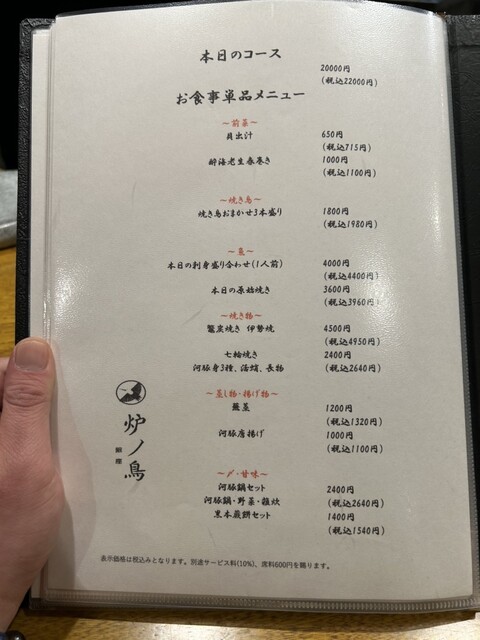 本日のコース
20000円
(税込22000円)
お食事単品メニュー
～前菜～
貝出汁
650円
(税込715円)
酔海老生春巻き
1000円
(税込1100円)
～焼き鳥～
焼き鳥おまかせ3本盛り
1800円
(税込1980円)
本日の刺身盛り合わせ(1人前)
4000円
(税込4400円)
本日の原始焼き
3600円
(税込3960円)
～焼き物～
焼き 伊勢焼
4500円
(税込4950円)
七輪焼き
2400円
河豚身3種、活鮑、長物
(税込2640円)
～蒸し物・揚げ物～
1200円
(税込1320円)
河豚唐揚げ
1000円
(税込1100円)
～〆・甘味～
河豚鍋セット
2400円
河豚鍋・野菜・雑炊
(税込2640円)
黒本煎餅セット
1400円
(税込1540円)
炉ノ鳥
銀座
表示価格は税込みとなります。別途サービス料(10%)、席料600円を賜ります。